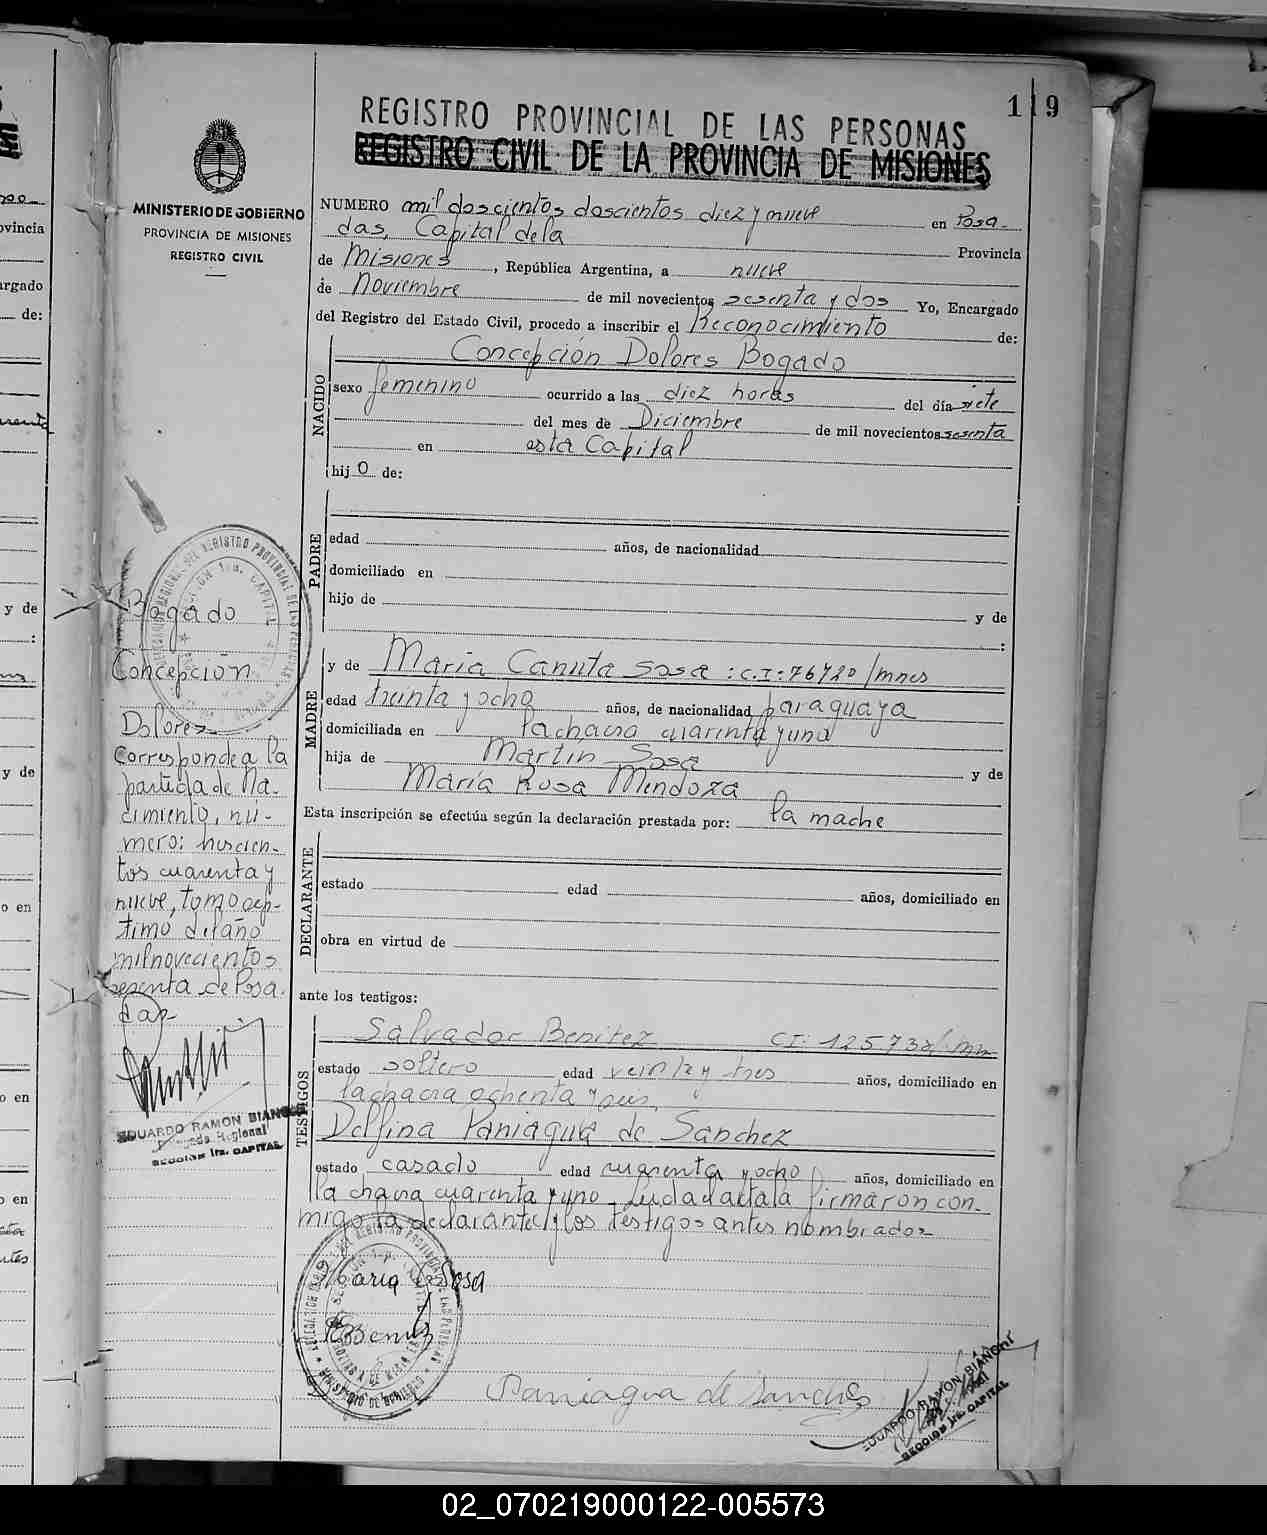 119
REGISTRO PROVINCIAL DE LAS PERSONAS
REGISTRO CIVIL DE LA PROVINCIA DE MISIONES
MINISTERIO DE GOBIERNO
PROVINCIA DE MISIONES
REGISTRO CIVIL
NUMERO mil doscientos doscientos diez y nueve en Posa-
das, Capital de la Provincia
de Misiones, República Argentina, a nueve
de Noviembre de mil novecientos sesenta y dos Yo, Encargado
del Registro del Estado Civil, procedo a inscribir el Reconocimiento de:
NACIDO
Concepción Dolores Bogado
sexo femenino ocurrido a las diez horas del día siete
del mes de Diciembre de mil novecientos sesenta
en esta Capital
hijo de:
PADRE
edad años, de nacionalidad
domiciliado en
hijo de y de
:
MADRE
y de Maria Canuta Sosa : C.I: 76720/mnes
edad treinta y ocho años, de nacionalidad paraguaya
domiciliada en la chacra cuarenta y una
hija de Martin Sosa y de
María Rosa Mendoza
Esta inscripción se efectúa según la declaración prestada por: la madre
DECLARANTE
estado edad años, domiciliado en
obra en virtud de
ante los testigos:
TESTIGOS
Salvador Benitez CI: 125.738
estado soltero edad veinte y tres años, domiciliado en
la chacra ochenta y seis.
Delfina Paniagua de Sanchez
estado casado edad cuarenta y ocho años, domiciliado en
la chacra cuarenta y uno. Leida el acta la firmaron con-
migo la declarante y los testigos antes nombrados
Maria Sosa
Paniagua de Sanches
EDUARDO RAMON BIANCHI
SECCION 1ra. CAPITAL
Bogado
Concepción
Dolores
Corresponde a la
partida de Na-
cimiento, nú-
mero: noscien-
tos cuarenta y
nueve, tomo sep-
timo del año
mil novecientos
sesenta de Posa-
das
EDUARDO RAMON BIANCHI
Delegado Regional
SECCION 1ra. CAPITAL
02_070219000122-005573